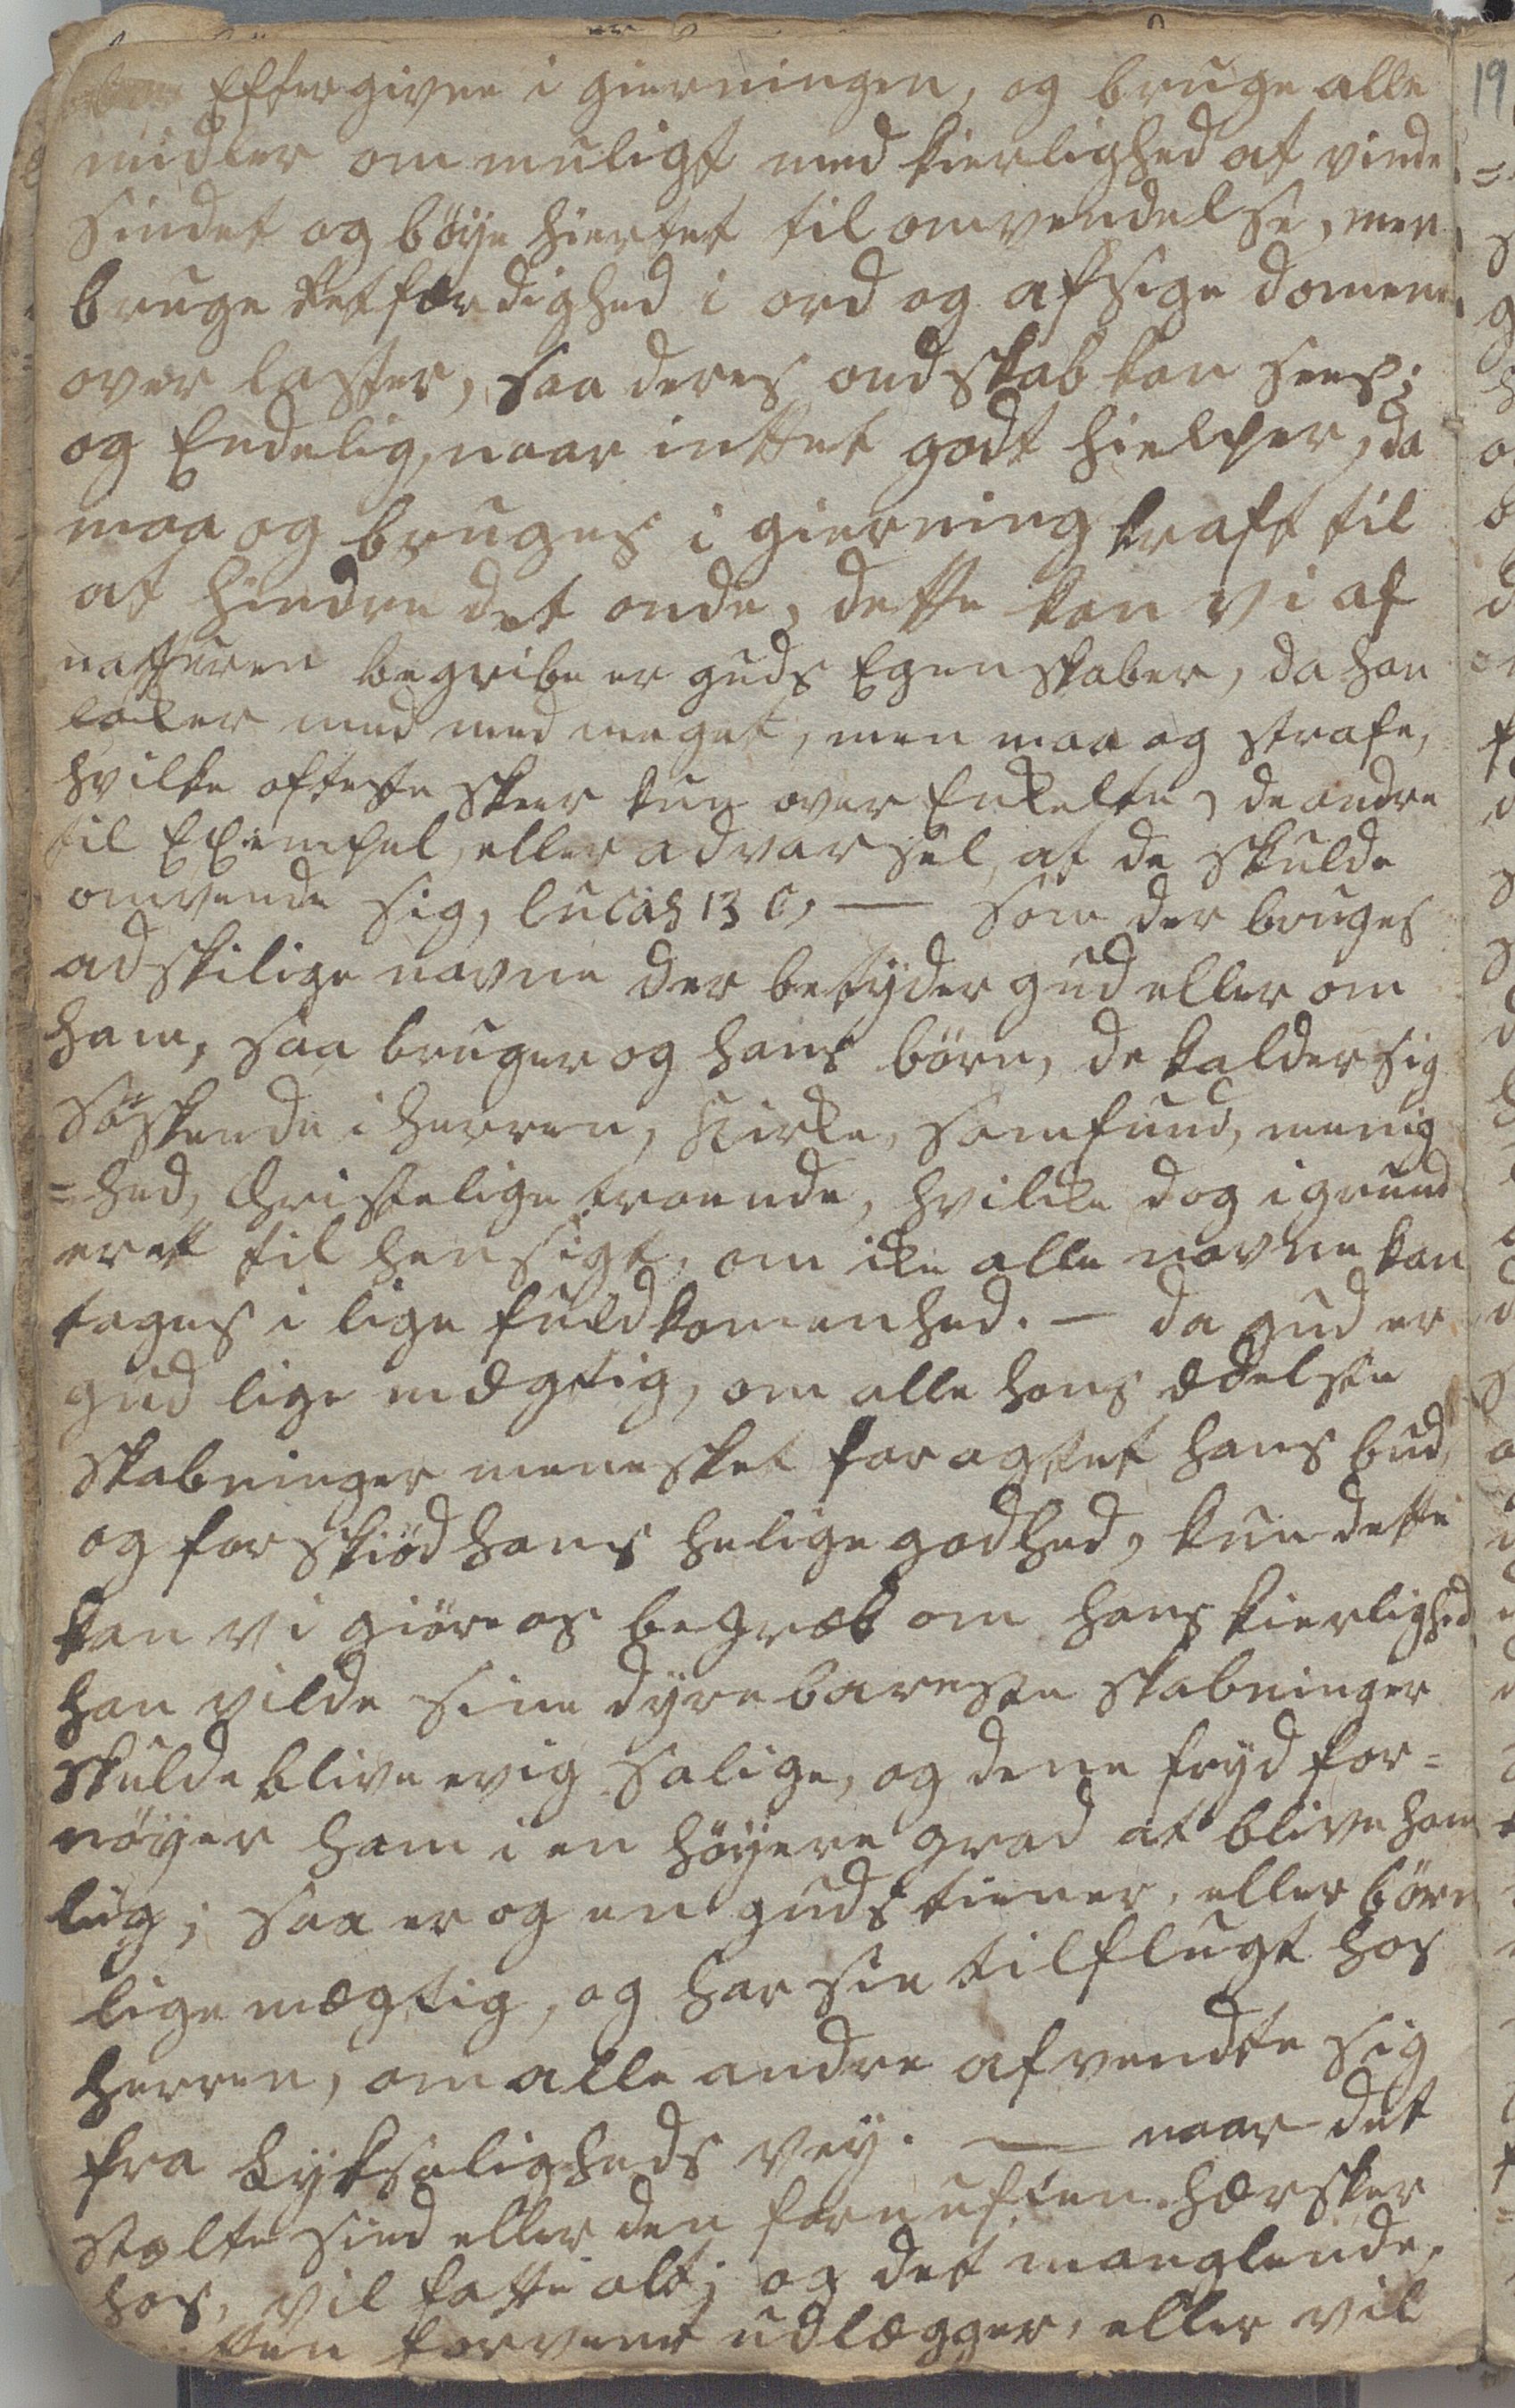 Eftergivne i gierningen, og bruge alle
midler om muligt med kierlighed at vinde
Sindet og böye hiertet til omvendelse, men
bruge Retfærdighed i ord og afsige domene
over laster, saa deres ondskab kan sees;
og Endelig, naar inttet godt hielper, da
maa og bruges i gierning kraft til
at hindre det onde, dette kan vi af
natturen begribe er guds Egenskaber, da han
laaker med med meget, men maa og strafe,
hvilke ofteste skeer kun over Enkelte, de andre
til Exsempel, eller advarsel, at de skulde
omvende sig, lucas 13 C, — Som der bruges
adskilige navne der betÿder gud eller om
ham, saa bruger og hans börn, de kalder sig
Söskende i herren, Kirke, Samfund, menig
=hed, Christelige troende, hvilke dog i grund
eret til hensigt, om ike alle navne kan
tages i lige fuldkomenhed. — da gud er
gud lige mægtig, om alle hans ædelste
skabninger menesket foragtet hans bud,
og forskiöd hans helige godhed, kun dette
kan vi giöre os begræb om hans kierlighed
han vilde sine dÿrebareste skabninger
skulde blive evig salige, og dene frÿd for=
nöÿer ham i en höÿere grad at blive ham
lig; saa er og en guds tiener, eller börn
lige mægtig, og har sin tilflugt hos
herren, om alle andre afvendte sig
fra LÿkSaligheds veÿ. — naar det
stolte sind eller den fornuften hærsker
hos, vil fatte alt; og det manglende,
ten forvent udlægger, eller vil
19